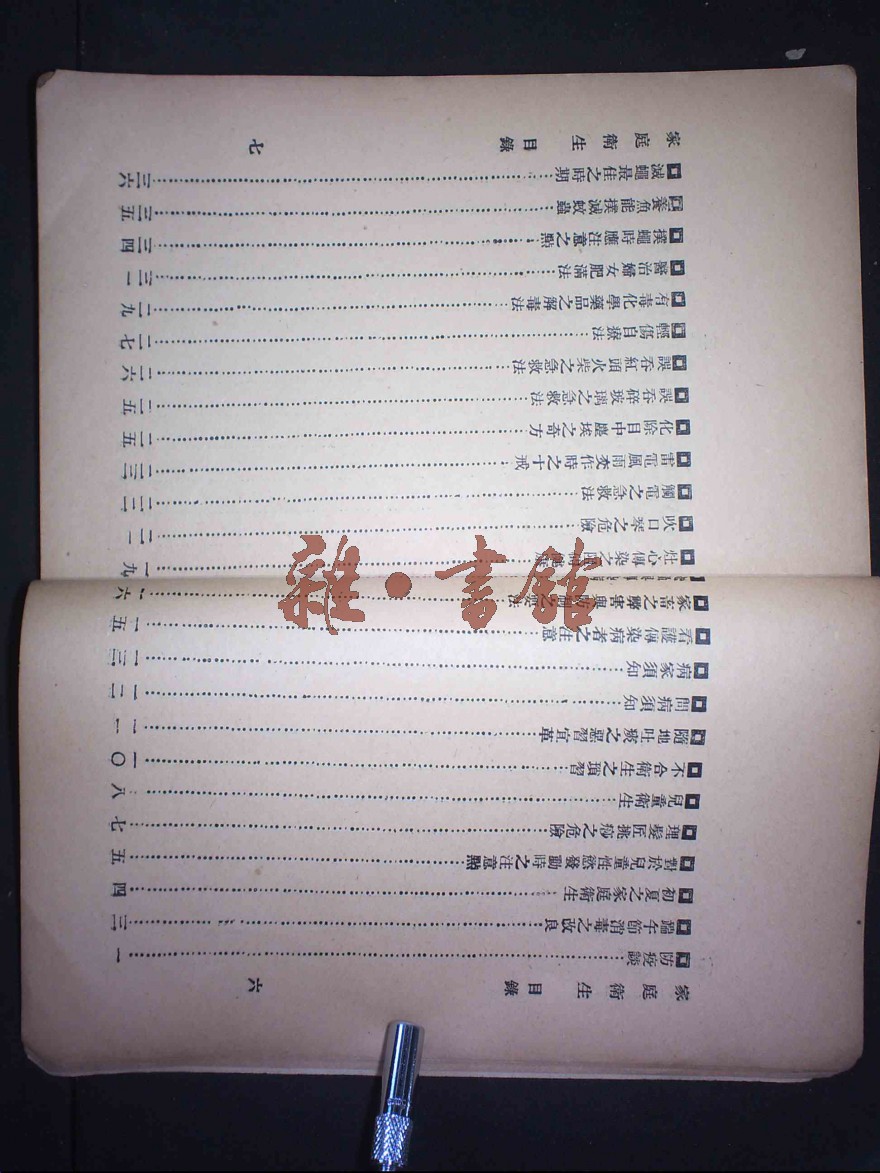 家庭衛生 目錄 六
防疫談 一
端午節消毒之改良 三
初夏之家庭衛生 四
對於兒童性慾發動時之注意點 五
理髮匠挑痧之危險 七
兒童衛生 八
不合衛生之瑣習 一〇
隨地吐痰之惡習宜革 一一
問病須知 一二
病家須知 一三
看護傳染病者之注意 一五
家畜之弊害與防制之要法 一六
心傳染之 一九
吹口琴之危險 二一
觸電之急救法 二二
雷電風雨交作時之十戒 二三
化除目中塵埃之奇方 二五
誤吞碎玻璃之急救法 二五
誤吞紅頭火柴之急救法 二六
輕傷自療法 二七
有毒化學藥品之解毒法 二九
醫治婦女肥滿法 三一
撲蠅時應注意之點 三四
養魚能撲滅蚊蟲 三五
滅蠅最佳之時期 三六
家庭衛生 目錄 七
雜·書館